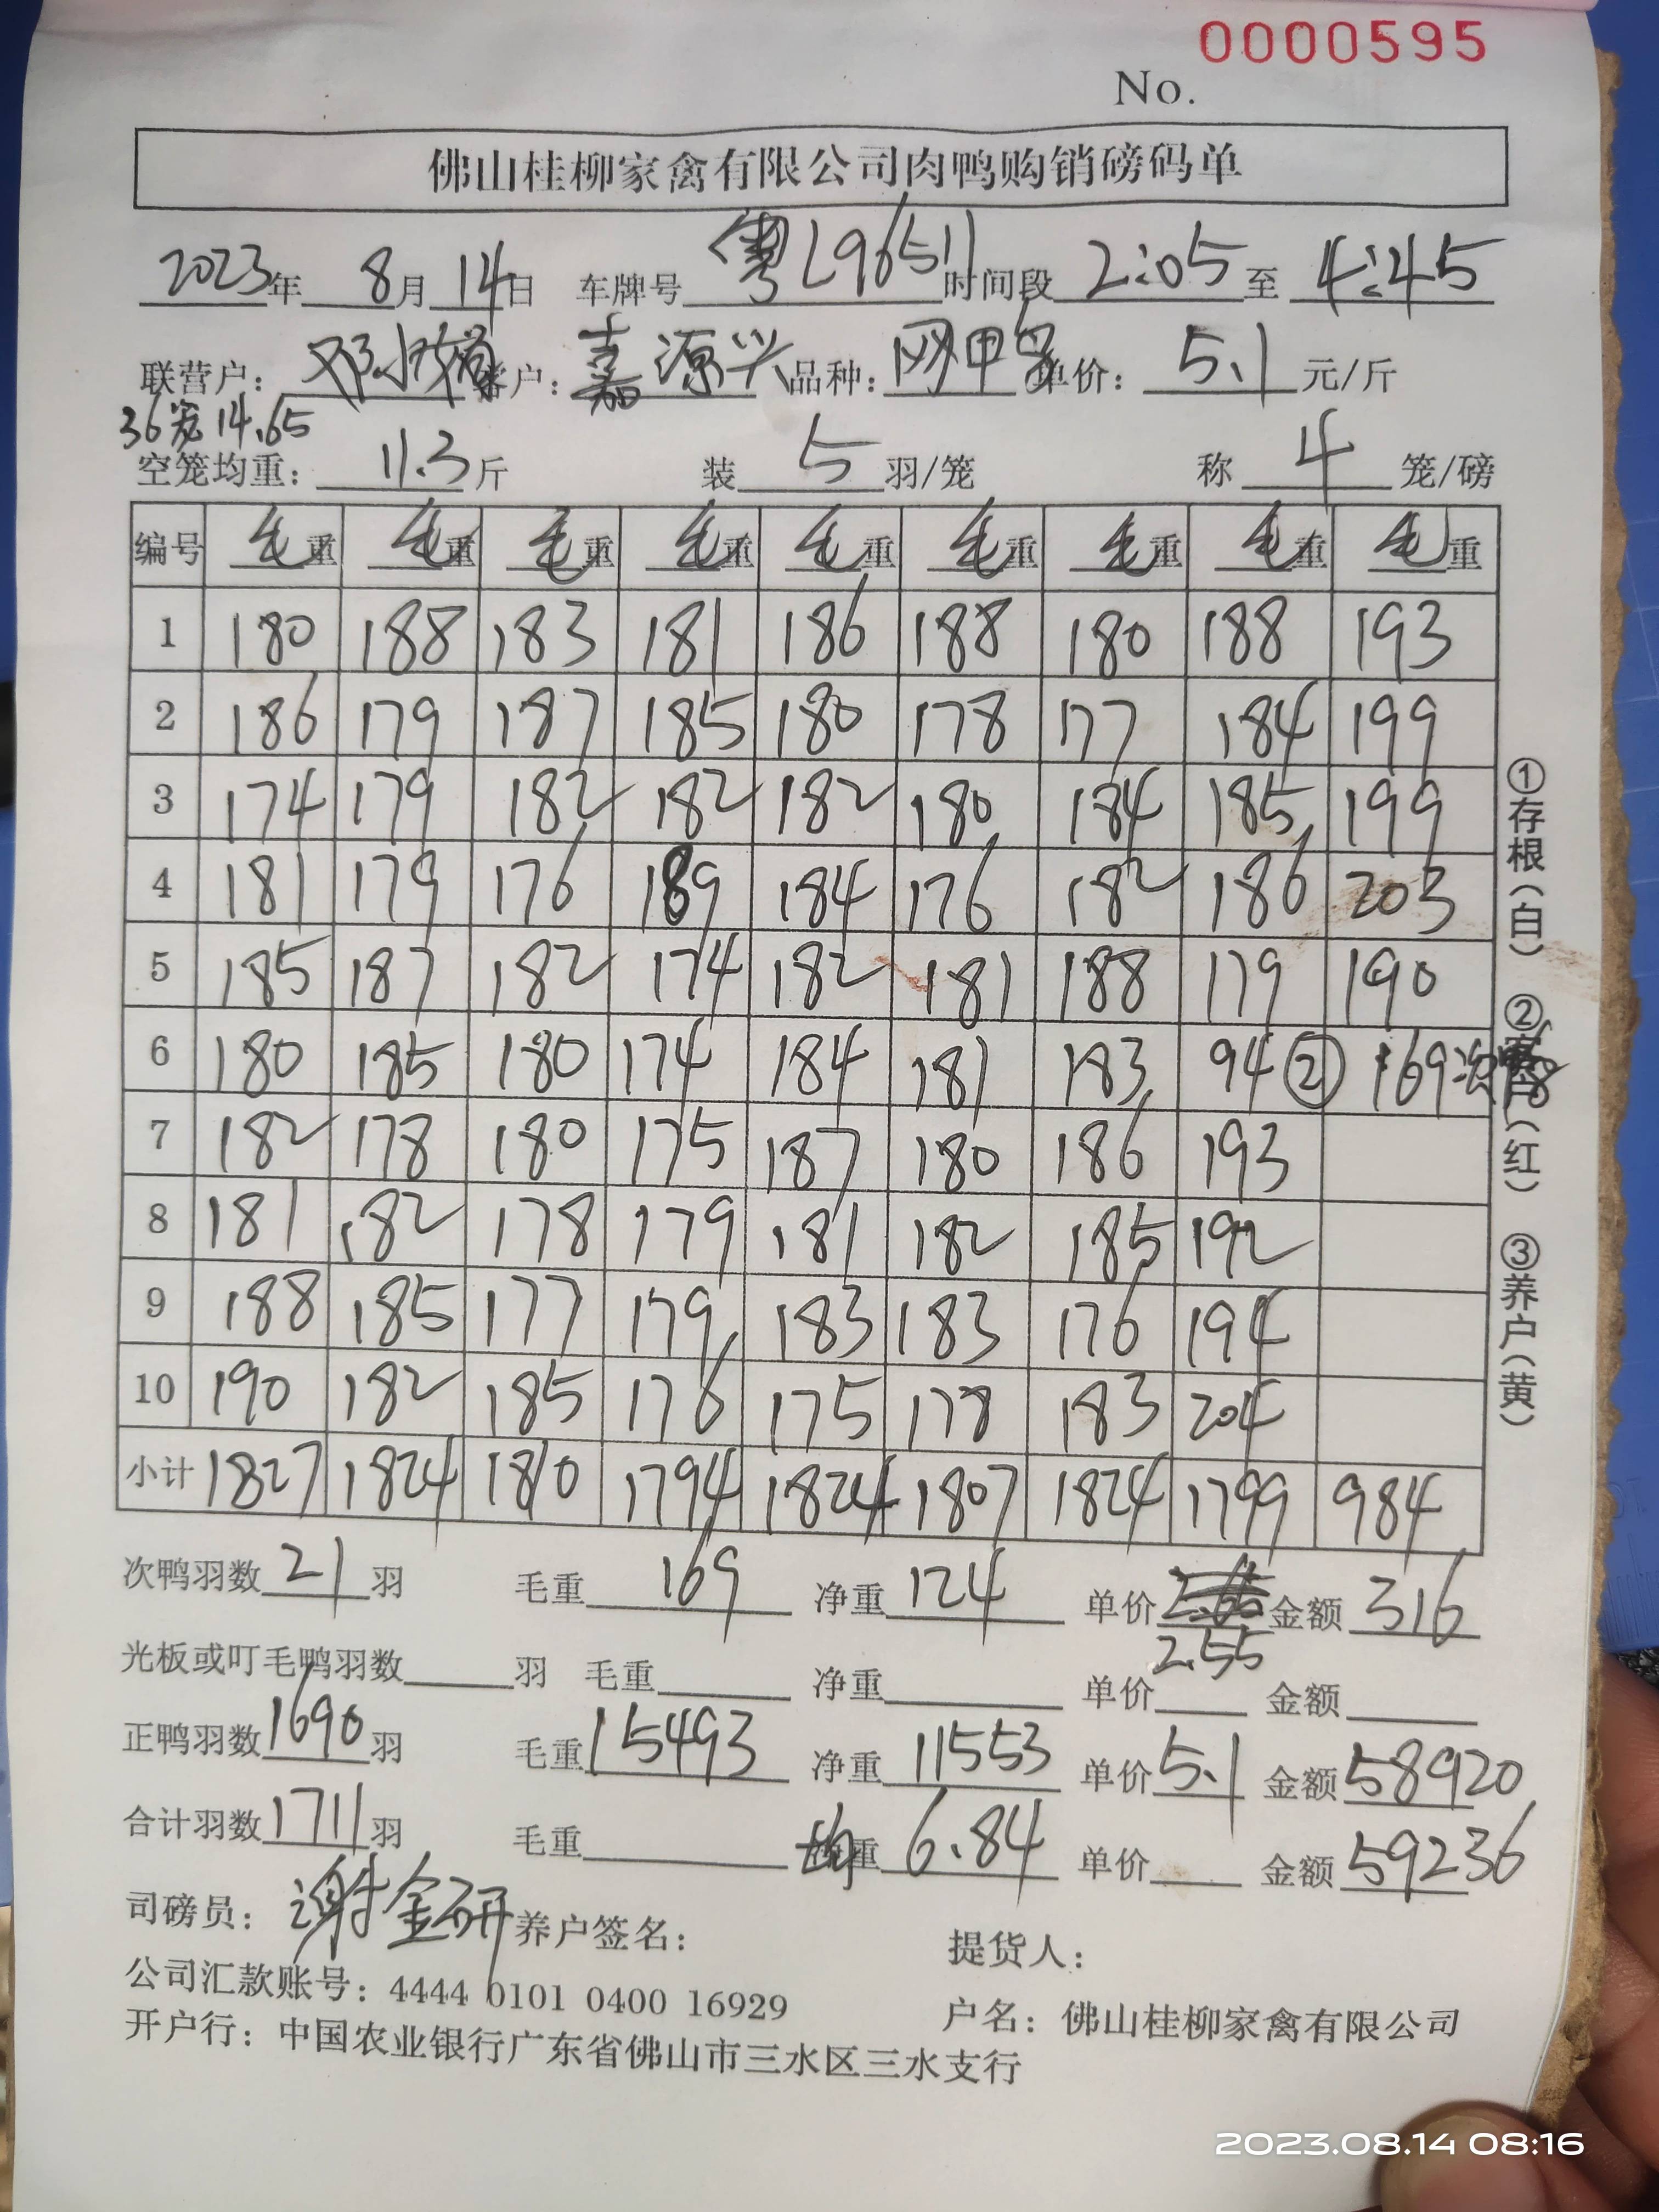 0000595
No.
佛山桂柳家禽有限公司肉鸭购销磅码单
2023年 8月 14日 车牌号 粤L96511 时间段 2:05 至 4:45
联营户: 邓小 客户: 嘉源兴 品种: 单价: 5.1 元/斤
36笼 14.65
空笼均重: 11.3 斤 装 5 羽/笼 称 4 笼/磅
编号 毛重 毛重 毛重 毛重 毛重 毛重 毛重 毛重 毛重
1 180 188 183 181 186 188 180 188 193
2 186 179 187 185 180 178 177 184 199
3 174 179 182 182 182 180 184 185 199
4 181 179 176 189 184 176 182 186 203
5 185 187 182 174 182 181 188 179 190
6 180 185 180 174 184 181 183 94② 169
7 182 178 180 175 187 180 186 193
8 181 182 178 179 181 182 185 192
9 188 185 177 179 183 183 176 194
10 190 182 185 176 175 178 183 204
小计 1827 1824 1810 1794 1824 1807 1824 1799 984
①存根(白) ②客户(红) ③养户(黄)
次鸭羽数 21 羽 毛重 169 净重 124 单价 2.55 金额 316
光板或叮毛鸭羽数 羽 毛重 净重 单价 金额
正鸭羽数 1690 羽 毛重 15493 净重 11553 单价 5.1 金额 58920
合计羽数 1711 羽 毛重 均重 6.84 单价 金额 59236
司磅员: 谢金研 养户签名: 提货人:
公司汇款账号: 4444 0101 0400 16929 户名: 佛山桂柳家禽有限公司
开户行: 中国农业银行广东省佛山市三水区三水支行
2023.08.14 08:16